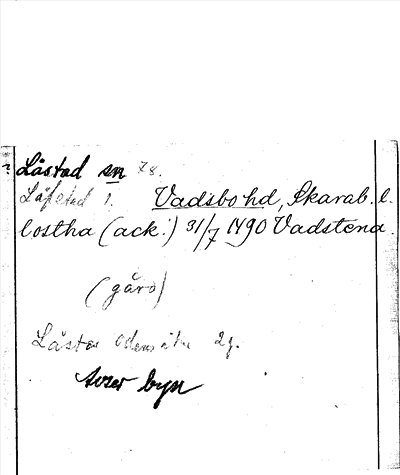 Låstad sn 78.
Låstad 1. Vadsbo hd, Skarab. l.
lostha (ack.) 31/7 1490 Vadstena.
(gård)
Låsta 2g.
byn